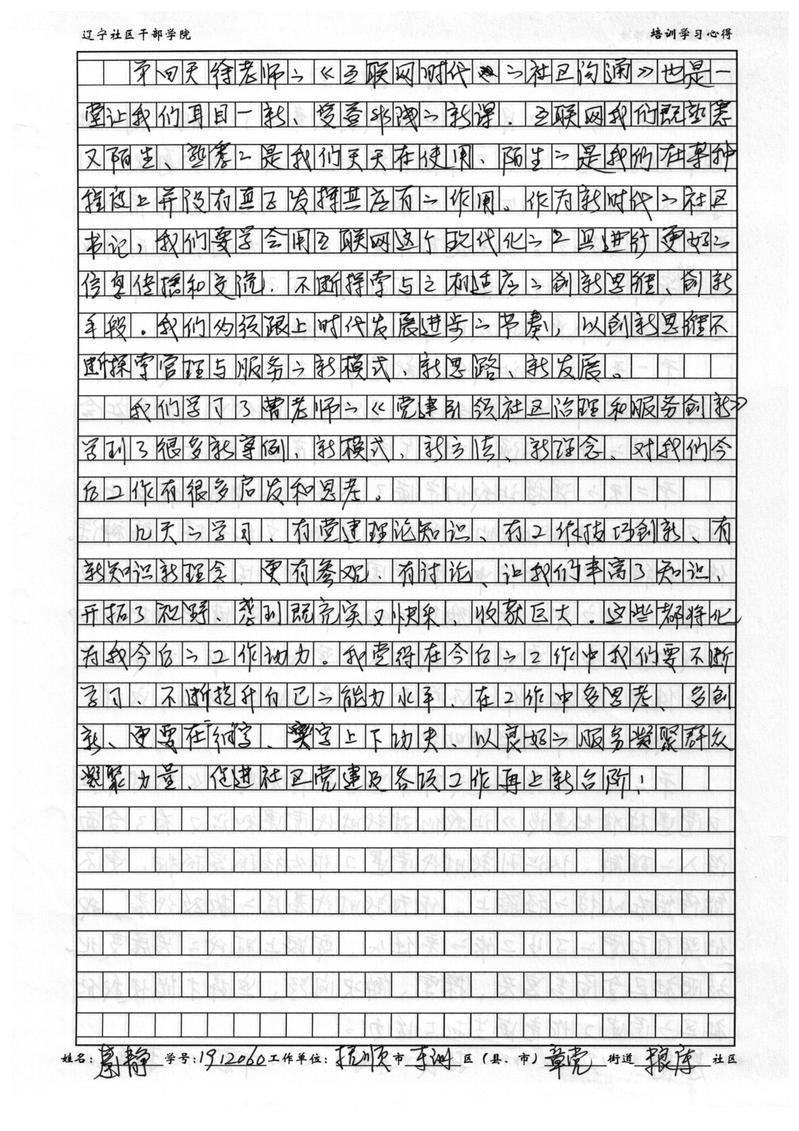 辽宁社区干部学院 培训学习心得
第四天徐老师的《互联网时代的社区沟通》也是一
堂让我们耳目一新、受益非浅的新课。互联网我们既熟悉
又陌生、熟悉的是我们天天在使用、陌生的是我们在某种
程度上并没有真正发挥其应有的作用。作为新时代的社区
书记，我们要学会用互联网这个现代化的工具进行更好的
信息传播和交流，不断探索与之相适应的创新思维、创新
手段。我们必须跟上时代发展进步的节奏，以创新思维不
断探索管理与服务的新模式、新思路、新发展。
我们学习了曹老师的《党建引领社区治理和服务创新》
学到了很多新事例、新模式、新方法、新理念，对我们今
后工作有很多启发和思考。
几天的学习，有党建理论知识、有工作技巧创新、有
新知识新理念、更有参观、有讨论、让我们丰富了知识、
开拓了视野、感到既充实又快乐、收获巨大。这些都将化
为我今后的工作动力。我觉得在今后的工作中我们要不断
学习、不断提升自己的能力水平，在工作中多思考、多创
新、更要在“细”字、“实”字上下功夫、以良好的服务凝聚群众
凝聚力量、促进社区党建及各项工作再上新台阶！
姓名：慕静 学号：1912060 工作单位：抚顺市东洲区（县、市）章党街道 社区